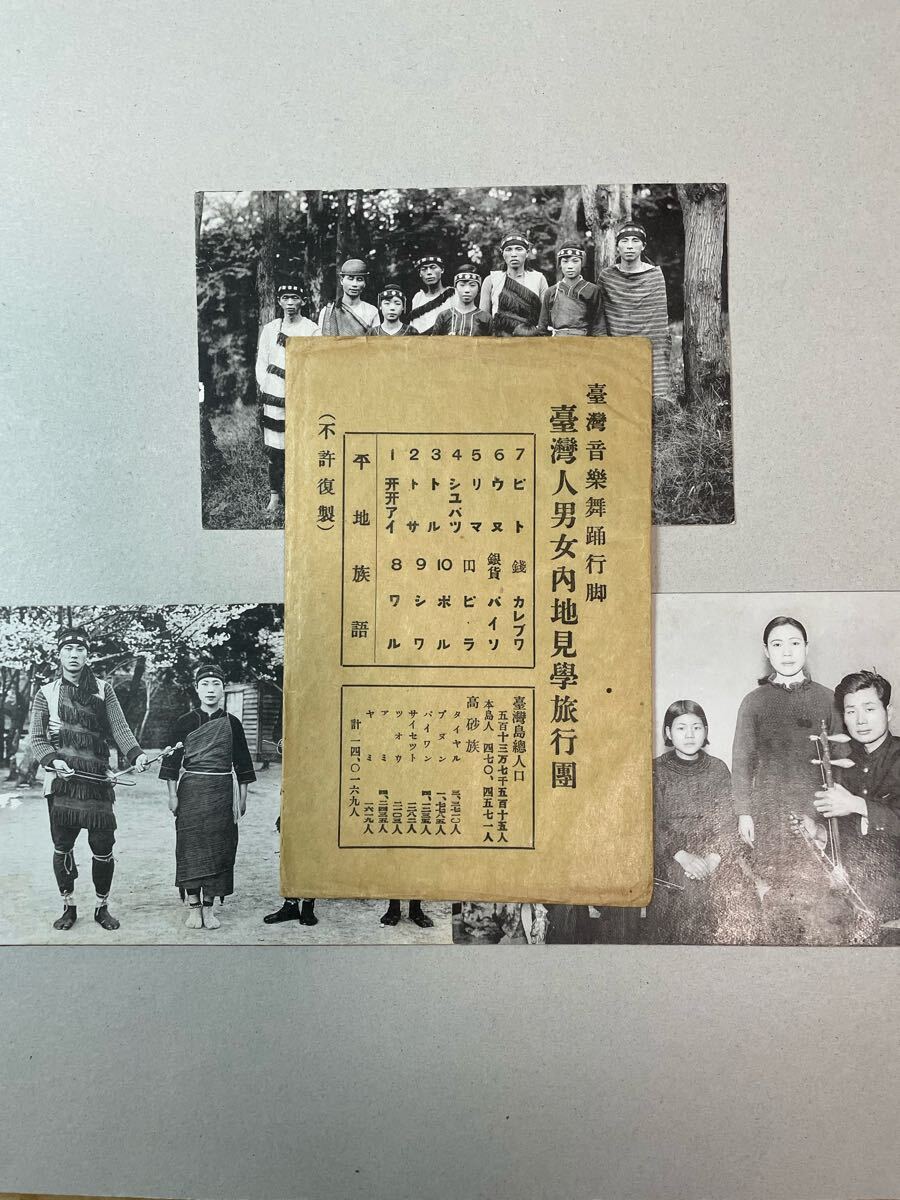 臺灣音樂舞踊行脚
臺灣人男女內地見學旅行團
平地族語
1 开开アイ
2 トサ
3 トル
4 シユパツ
5 リマ
6 ウヌ
7 ピト
8 ワル
9 シワ
10 ポル
ピ・ラ
銀貨 パイソ
錢 カレプワ
臺灣島總人口
五百十三万七千五百十五人
本島人 四七〇、四五七一人
高砂族
タイヤル
ブヌン 一、七八五人
パイワン
サイセツト
ツオウ 二一〇三人
アミ 四、二四三五人
ヤミ 一六一九人
計 一四、〇一六九人
（不許復製）